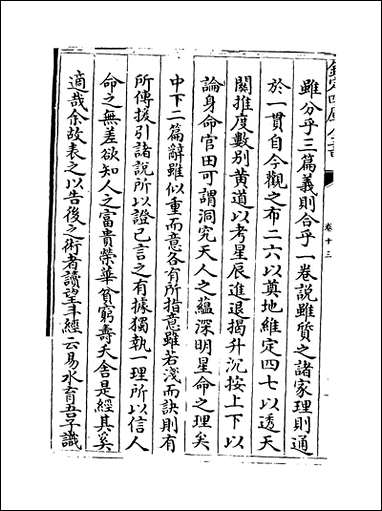 欽定四庫全書
卷十三
雖分乎三篇義則合乎一卷說雖質之諸家理則通
於一貫自今觀之布二六以奠地維定四七以透天
關推度數別黃道以考星辰進退揭升沉按上下以
論身命官田可謂洞究天人之蘊深明星命之理矣
中下二篇辭雖似重而意各有所指意雖若淺而訣則有
所傳援引諸說所以證己言之有據獨執一理所以信人
命之無差欲知人之富貴榮華貧窮壽夭舍是經其奚
適哉余故表之以告後之術者讀望斗經云易水育吾子識